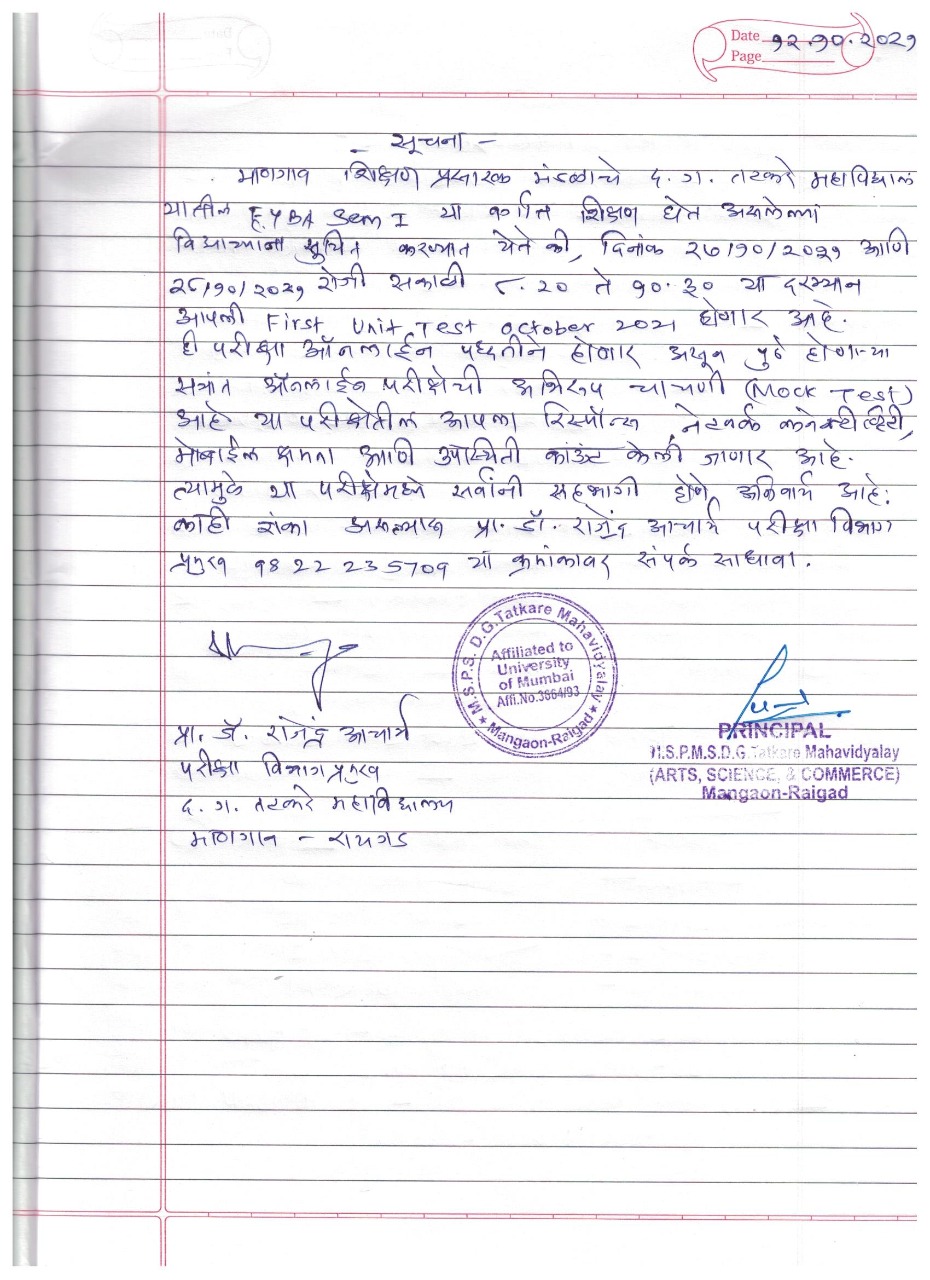 Date १२.१०.२०२१
Page
- सूचना -
माणगाव शिक्षण प्रसारक मंडळाचे द. ग. तटकरे महाविद्यालय
यातील F.Y.BA Sem I या वर्गात शिक्षण घेत असलेल्या
विद्यार्थ्यांना सुचित करण्यात येते की, दिनांक २७/१०/२०२१ आणि
२८/१०/२०२१ रोजी सकाळी ८.३० ते १०.३० या दरम्यान
आपली First Unit Test October 2021 होणार आहे.
ही परीक्षा ऑनलाईन पध्दतीने होणार असून पुढे होणाऱ्या
सत्रांत ऑनलाईन परीक्षेची अभिरूप चाचणी (Mock Test)
आहे या परीक्षेतील आपला रिस्पॉन्स, नेटवर्क कनेक्टीव्हिटी,
मोबाईल क्षमता आणि उपस्थिती काऊंट केली जाणार आहे.
त्यामुळे या परीक्षेमध्ये सर्वांनी सहभागी होणे अनिवार्य आहे.
काही शंका असल्यास प्रा. डॉ. राजेंद्र आचार्य परीक्षा विभाग
प्रमुख 98 22 23 5709 या क्रमांकावर संपर्क साधावा.
M.S.P.S. D.G.Tatkare Mahavidyalay
Affiliated to
University
of Mumbai
Affi.No.3664/93
Mangaon-Raigad
प्रा. डॉ. राजेंद्र आचार्य
परीक्षा विभाग प्रमुख
द. ग. तटकरे महाविद्यालय
माणगाव - रायगड
PRINCIPAL
M.S.P.M.S.D.G.Tatkare Mahavidyalay
(ARTS, SCIENCE, & COMMERCE)
Mangaon-Raigad